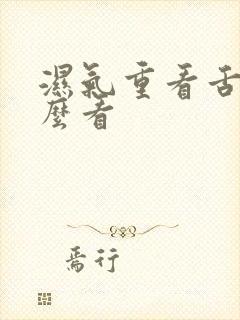 濕氣重看舌
麼看
焉行